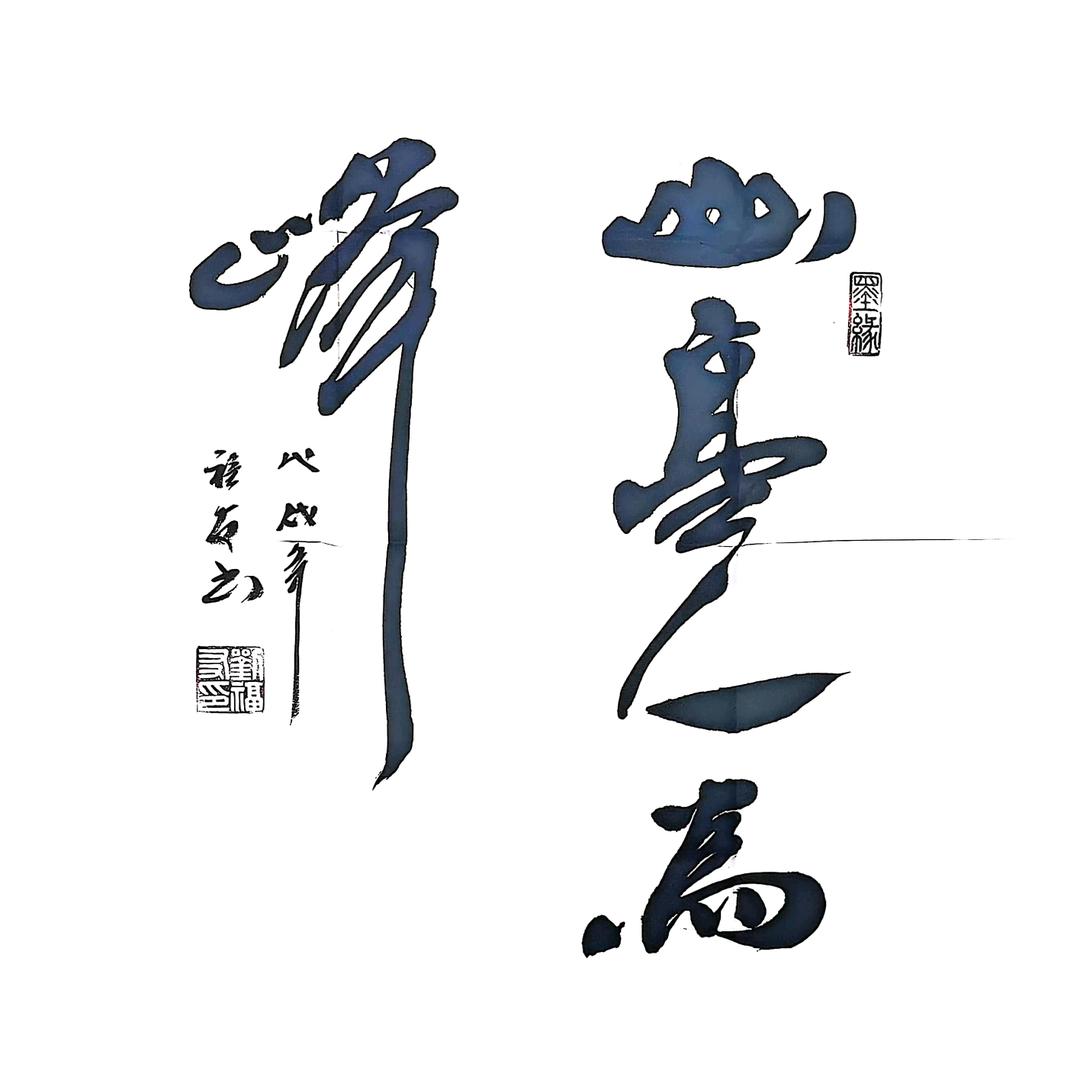 墨緣
山高人為
峰
戊戌年
福友书
劉福友印